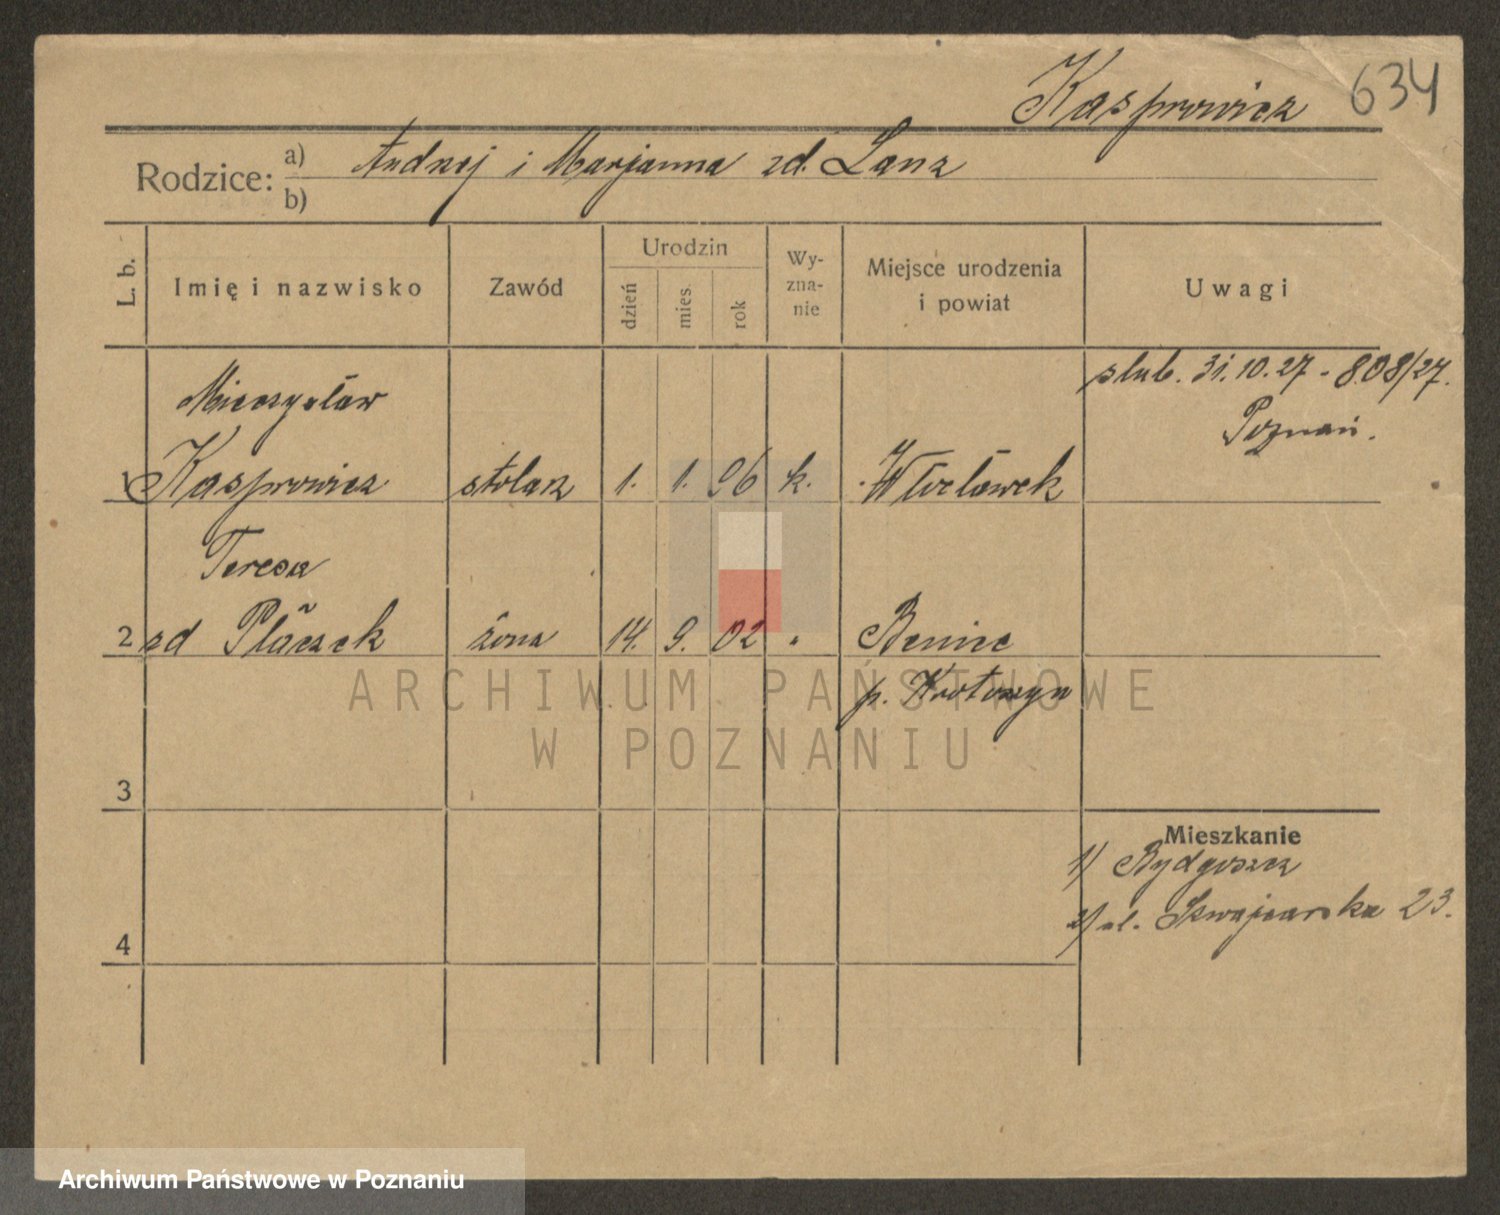 Kasprowicz 634
Rodzice: a) Andrzej i Marjanna zd. Lanz
b)
L. b. Imię i nazwisko Zawód Urodzin dzień mies. rok Wyznanie Miejsce urodzenia i powiat Uwagi
ślub. 31.10.27 - 808/27.
Mieczysław
Poznań.
1 Kasprowicz stolarz 1. 1. 96 k. Włocławek
Teresa
2 zd Płaczek żona 14. 9. 02 " Benice
p. Krotoszyn
3
Mieszkanie
1) Bydgoszcz
2) ul. Szwajcarska 23.
4
ARCHIWUM PAŃSTWOWE
W POZNANIU
Archiwum Państwowe w Poznaniu